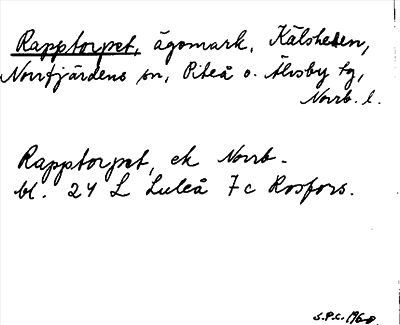 Rapptorpet, ägomark, Kälsheden,
Norrfjärdens sn, Piteå o. Älvsby tg,
Norrb. l.
Rapptorpet, ek Norrb.
bl. 24 L Luleå 7c Rosfors.
S.P.C. 1960.